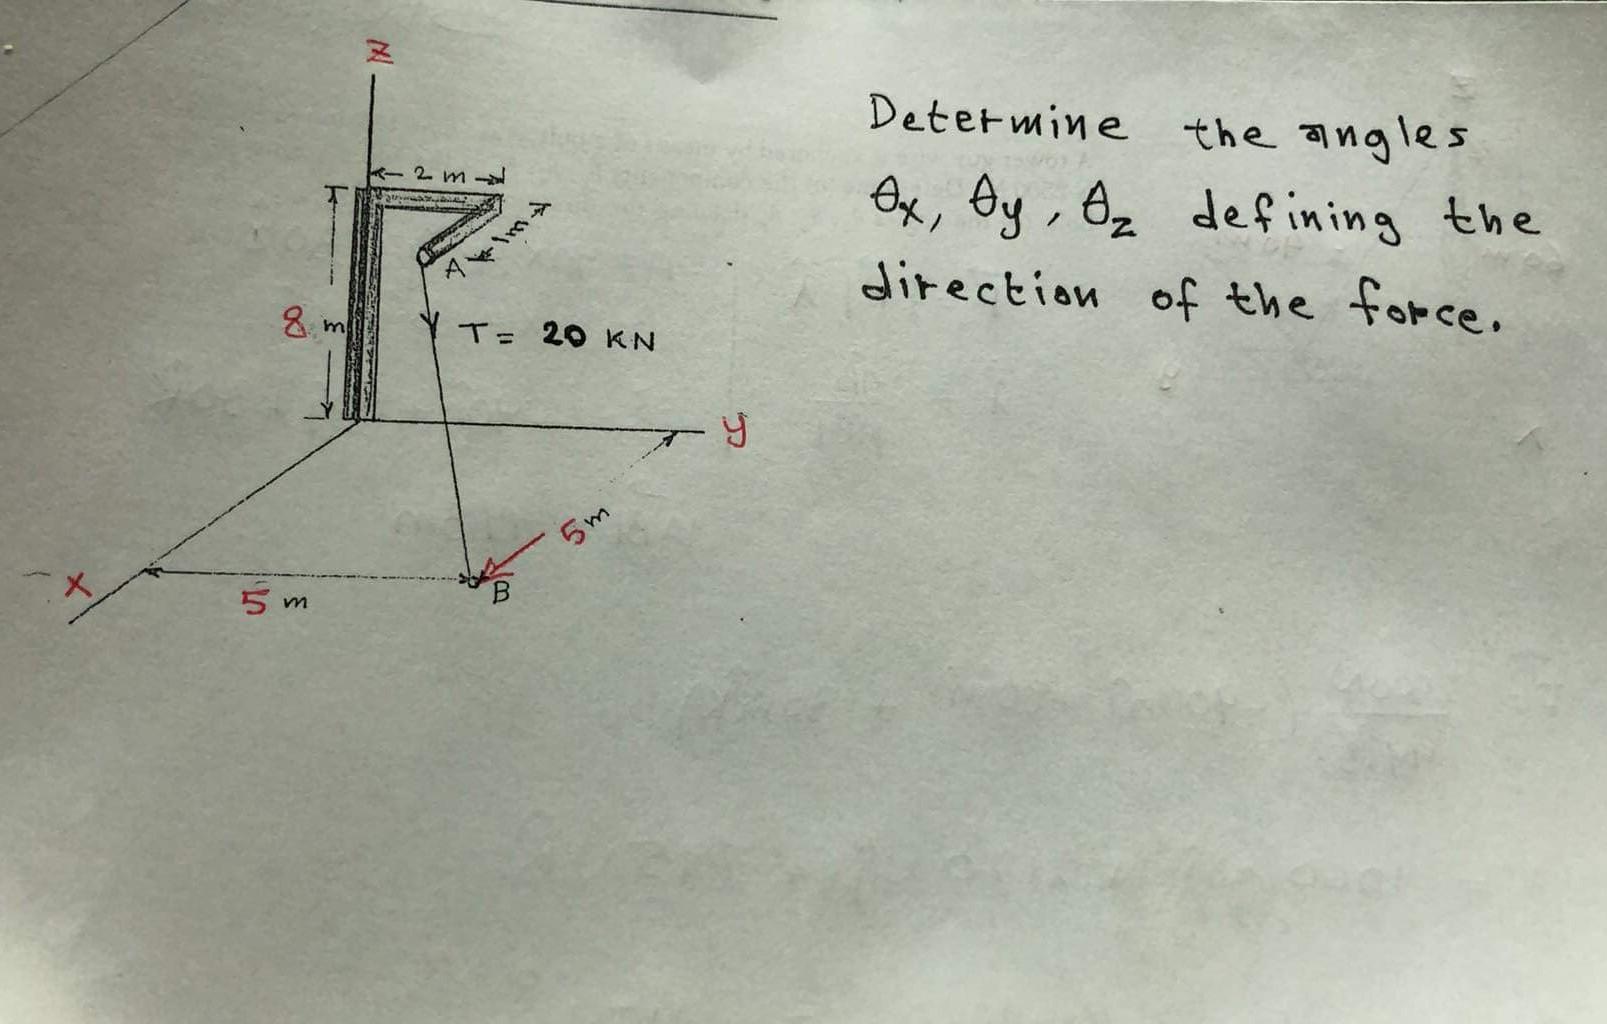 Z
2 m
1m
A
8 m
T = 20 KN
y
5 m
X
5 m
B
Determine the angles
θx, θy, θz defining the
direction of the force.